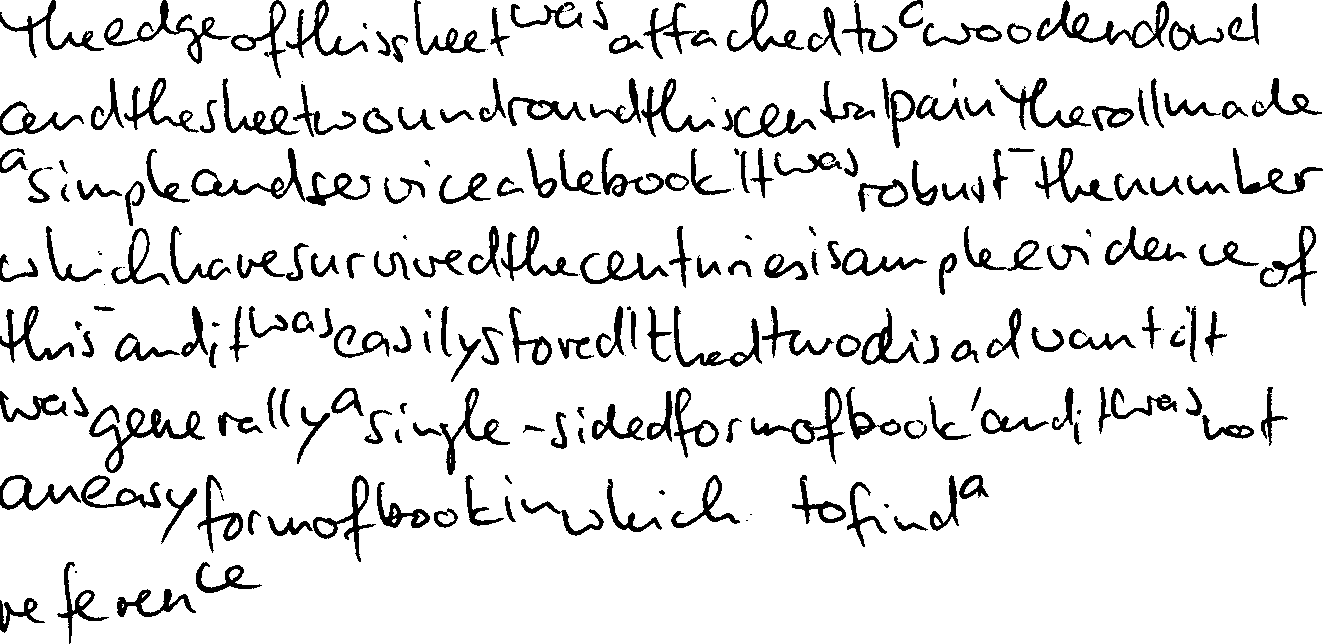 The edge of this sheet was attached to a wooden dowel
and the sheet wound round this central pain The roll made
a simple and serviceable book It was robust - the number
which have survived the centuries is ample evidence of
this - and it was easily stored It had two disadvant It
was generally a single-sided form of book ' and it was not
an easy form of book in which to find a
reference